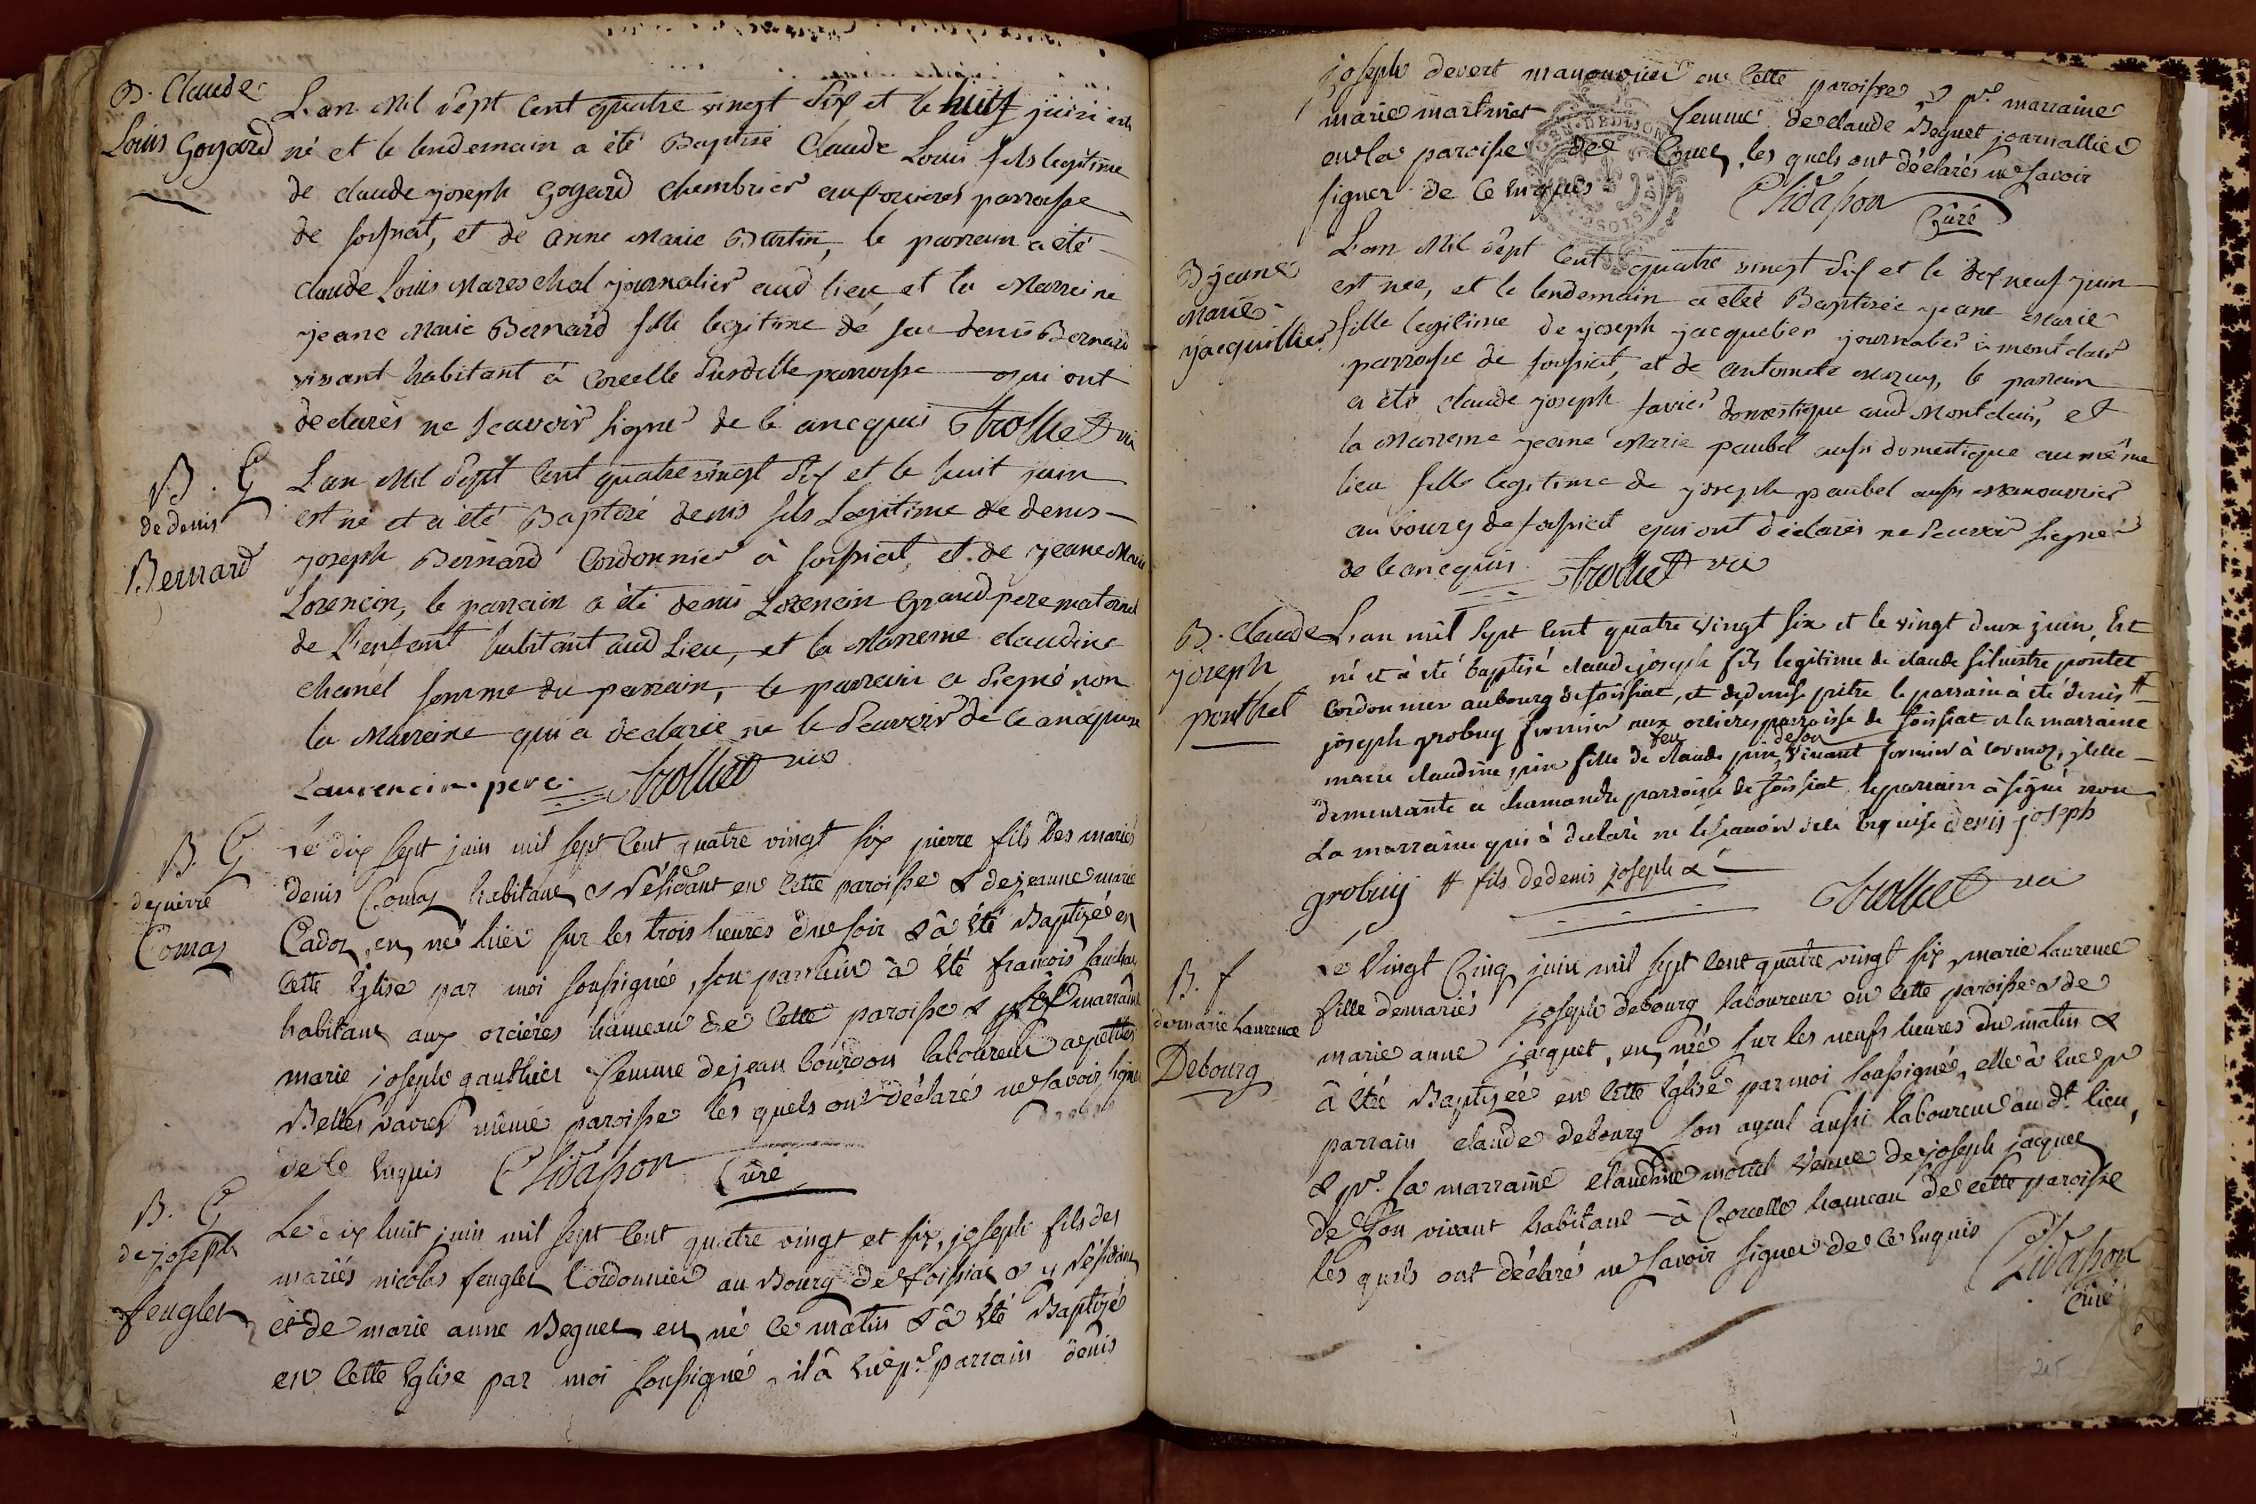 B. Claude
Louis Goyard
L'an Mil Sept Cent quatre vingt Six et le huit juin est
né et le lendemain a été Baptisé Claude Louis fils legitime
de claude joseph Goyard Chambrier aux orcieres parroisse
de foissiat, et de anne Marie Burtin, le parrain a été
claude Louis Mareschal journalier aud lieu et la Marreine
jeane Marie Bernard fille legitime de feu denis Bernard
vivant habitant a Corcelle Susditte parroisse qui ont
declarés ne Scavoir Signer de ce ancquis Trolliet vic
B. G
de denis
Bernard
L'an Mil Sept Cent quatre vingt Six et le huit juin
est né et a été Baptisé denis fils Legitime de denis
joseph Bernard Cordonnier à foissiat, et de jeane Marie
Lorencin, le parrain a été denis Lorencin Grand pere maternel
de l'enfant habitant aud Lieu, et la Marreine claudine
chanel femme du parrain, le parrain a Signé non
la Marreine qui a declaree ne le Scavoir de ce ancquise
Laurencin pere Trolliet vic
B. G
de pierre
Comas
Le dix sept juin mil sept Cent quatre vingt six pierre fils des mariés
denis Comas habitant & Résidant en Cette paroisse & de jeanne marie
Cadoz, en né hier sur les trois heures du soir & â été Baptizé en
Cette Eglise par moi soussigné, son parrain â été francois
habitant aux orciéres hameau de Cette paroisse & marraine
marie joseph gauthier femme de jean bourdon laboureur
Belles vavres même paroisse les quels ont déclarés ne savoir signer
de ce Enquis Chidasson Curé
B. G
de joseph
feuglet
Le dix huit juin mil sept Cent quatre vingt et six, joseph fils des
mariés nicolas feuglet Cordonnier au Bourg de foissiat & y Résidant
et de marie anne Beguet en né ce matin & â été Baptizé
en Cette Eglise par moi soussigné, il â Eu pr parrain denis
joseph devert manouvrier en Cette paroisse & pr marraine
marie martinet femme de claude Beguet journallier
en la paroisse des Conet les quels ont déclarés ne savoir
signer de Ce Enquis Chidasson Curé
B jeane
Marie
jacquillier
L'an Mil Sept Cent quatre vingt Six et le dix neuf juin
est née, et le lendemain a été Baptisée jeane Marie
fille legitime de joseph jacquelier journalier à montclair
parroisse de foissiat, et de antoinete Mazuy, le parrein
a été claude joseph favier domestique aud Montclair, et
la Marreine jeane Marie paubel aussi domestique au même
lieu fille legitime de joseph paubel aussi Manouvrier
au bourg de foissiat qui ont déclarés ne Scavoir Signer
de ce ancquis Trolliet vic
B. Claude
joseph
ponthet
L'an mil sept cent quatre vingt six et le vingt deux juin, Est
né et à été baptisé claude joseph fils legitime de claude silvestre pontet
Cordonnier au bourg de foissiat, et de denise pitre le parrain à été denis #
joseph grobuy fermier aux orcieres parroisse de foissiat et la marraine
marie claudine pin fille de feu claude pin de son vivant fermier à cormoz, icelle
demeurante a chamandre parroisse de foissiat, le parrain à signé non
La marraine qui à declaré ne le scavoir de ce enquise denis joseph
grobuy # fils de denis joseph &
Trolliet vic
B. f
de marie Laurence
Debourg
Le Vingt Cinq juin mil sept Cent quatre vingt six, marie Laurence
fille de mariés joseph debourg laboureur en Cette paroisse & de
marie anne jacquet, en née sur les neufs heures du matin &
â été Baptizée en Cette Eglise par moi soussigné, elle â Eue pr
parrain claude debourg son ayeul aussi laboureur au dt lieu,
& pr sa marraine claudine mottel veuve de joseph jacquet
de son vivant habitant à Corcelle hameau de cette paroisse
les quels ont déclaré ne savoir signer de Ce Enquis
Chidasson
Curé